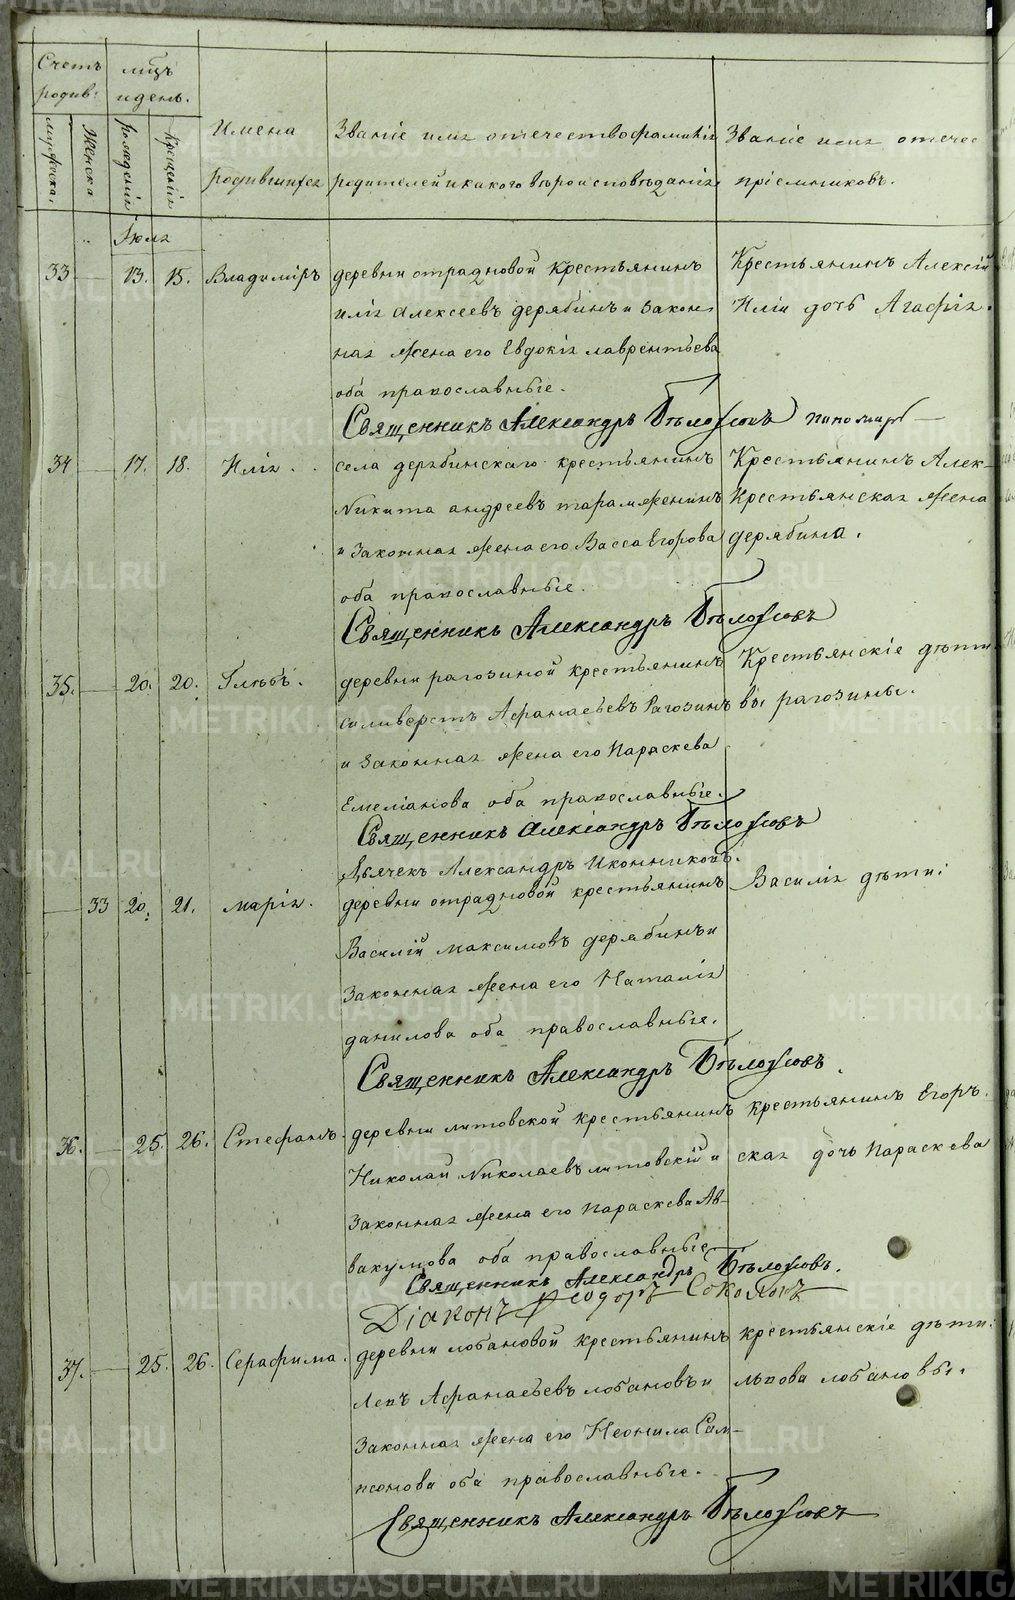 Счетъ родив:
мцъ и день.
Имена родившихся
Званіе имя отечество фамилія родителей и какого вѣроисповѣданія
Званіе имя отчес пріемниковъ.
мужеска.
Женска
рожденія
Крещенія
Іюля
33 13. 15. Владиміръ
деревни отрадновой Крестьянинъ
Илія Алексеевъ дерябинъ и Закон,
ная жена его Евдокія лаврентьева
оба православные.
Крестьянинъ Алексій
Иліи дочь Агафія.
Священникъ Александръ Бѣлоусовъ
34 17. 18. Илія.
села дерябинскаго крестьянинъ
Никита андреевъ
и Законная жена его Васса Егорова
оба православные.
Крестьянинъ Алек-
Крестьянская жена
дерябина.
Священникъ Александръ Бѣлоусовъ
35. 20. 20. Глѣбъ.
деревни рагозиной крестьянинъ
силиверстъ Афанасьевъ Рагозинъ
и Законная жена его Параскева
Емеліанова оба православные.
Крестьянскіе дѣти
вы рагозины.
Священникъ Александръ Бѣлоусовъ
Дьячекъ Александръ Иконниковъ.
33 20. 21. марія.
деревни отрадновой крестьянинъ
Василій максимовъ дерябинъ и
Законная жена его Наталія
данилова оба православные.
Василія дѣти:
Священникъ Александръ Бѣлоусовъ.
36. 25. 26. Стефанъ.
деревни литовской крестьянинъ
Николай Николаевъ литовскій и
Законная жена его Параскева Ав-
вакумова оба православные
крестьянинъ Егоръ.
ская дочь Параскева
Священникъ Александръ Бѣлоусовъ.
Діаконъ Феодоръ Соколовъ
37. 25. 26. Серафима.
деревни лобановой крестьянинъ
Левъ Афанасьевъ лобановъ и
Законная жена его Неонила Сам-
псонова оба православные.
крестьянскіе дѣти:
львова лобановы.
Священникъ Александръ Бѣлоусовъ
METRIKI.GASO-URAL.RU